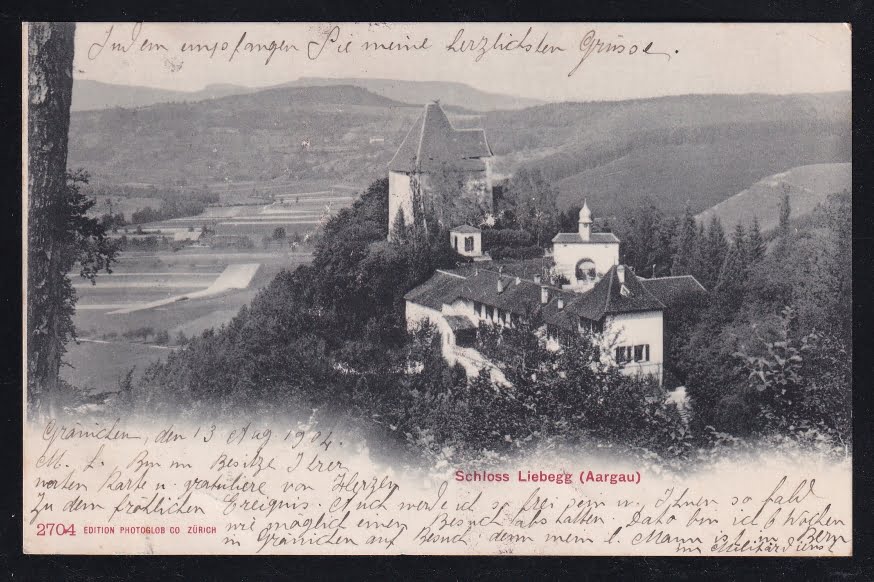 Indem empfangen Sie meine herzlichsten Grüsse.
Gränichen, den 13 Aug 1904.
M. L. Bin im Besitze Ihrer
werten Karte u. gratuliere von Herzen
Zu dem fröhlichen Ereignis. Auch werde ich so frei sein u. Ihnen so bald
wie möglich einen Besuch abstatten. Da bin ich 6 Wochen
in Gränichen auf Besuch, denn mein l. Mann ist in Bern
im Militärdienst
Schloss Liebegg (Aargau)
2704 EDITION PHOTOGLOB CO ZÜRICH